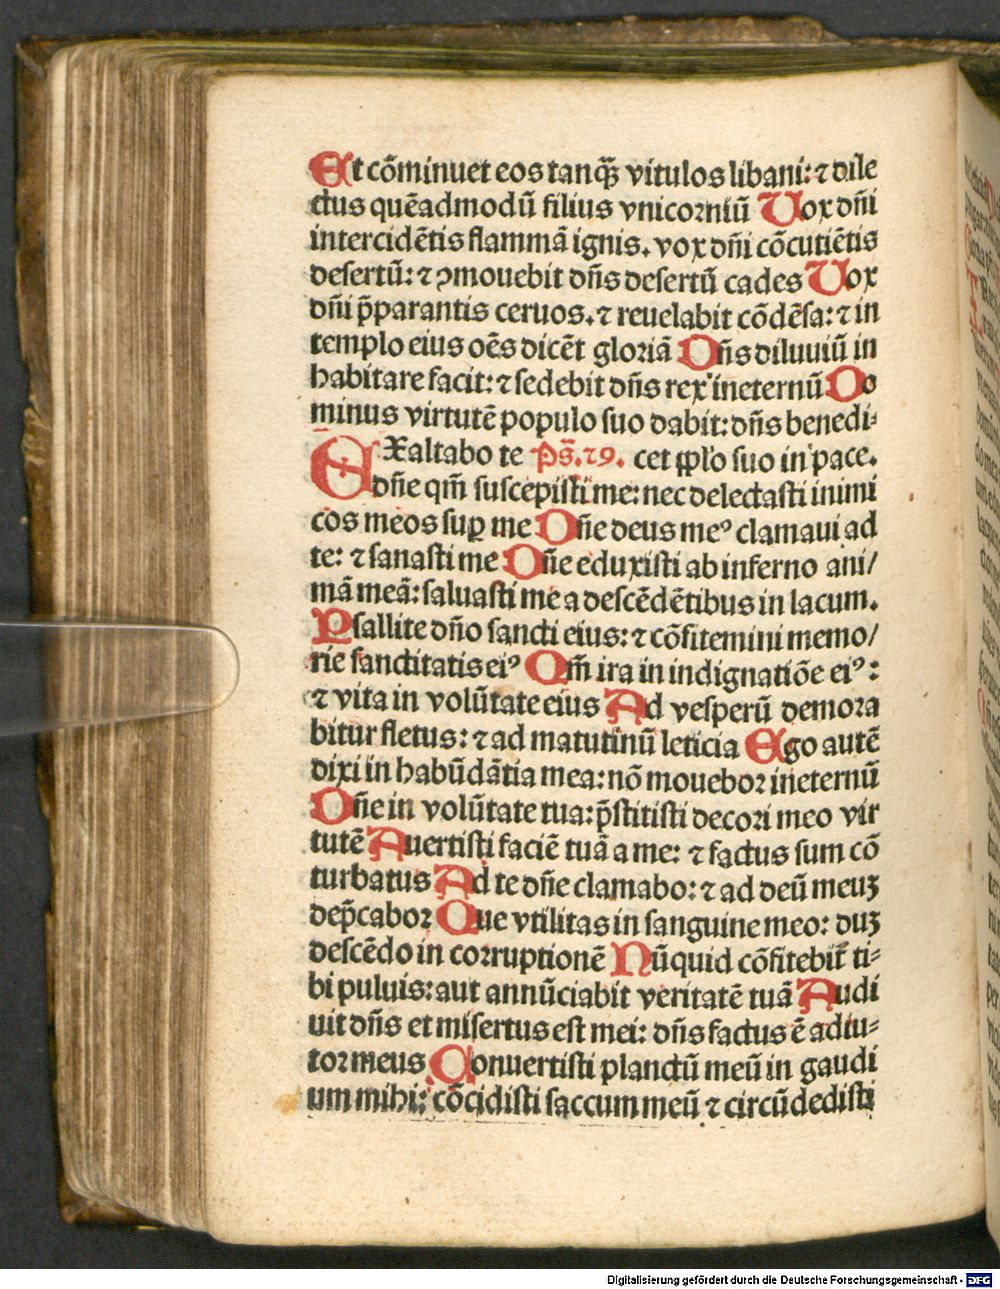 Et cõminuet eos tanq̃ʒ vitulos libani: ⁊ dile
ctus quẽadmodũ filius vnicorniũ Vox dñi
intercidẽtis flammã ignis. vox dñi cõcutiẽtis
desertũ: ⁊ ꝯmouebit dñs desertũ cades Vox
dñi p̃parantis ceruos. ⁊ reuelabit cõdẽsa: ⁊ in
templo eius oẽs dicẽt gloriã Dñs diluuiũ in
habitare facit: ⁊ sedebit dñs rex ineternũ Do
minus virtutẽ populo suo dabit: dñs benedi⸗
EXaltabo te Ps̃. ⁊9. cet ꝓplo suo in pace.
dñe qm̃ suscepisti me: nec delectasti inimi
cos meos suꝑ me Dñe deus meꝰ clamaui ad
te: ⁊ sanasti me Dñe eduxisti ab inferno ani/
mã meã: saluasti me a descẽdẽtibus in lacum.
Psallite dño sancti eius: ⁊ cõfitemini memo/
rie sanctitatis eiꝰ Qm̃ ira in indignatiõe eiꝰ:
⁊ vita in volũtate eius Ad vesperũ demora
bitur fletus: ⁊ ad matutinũ leticia Ego autẽ
dixi in habũdãtia mea: nõ mouebor ineternũ
Dñe in volũtate tua: p̃stitisti decori meo vir
tutẽ Auertisti faciẽ tuã a me: ⁊ factus sum cõ
turbatus Ad te dñe clamabo: ⁊ ad deũ meuʒ
dep̃cabor Que vtilitas in sanguine meo: duʒ
descẽdo in corruptionẽ Nũquid cõfitebit̃ ti⸗
bi puluis: aut annũciabit veritatẽ tuã Audi
uit dñs et misertus est mei: dñs factus ẽ adiu⸗
tor meus Conuertisti planctũ meũ in gaudi
um mihi: cõcidisti saccum meũ ⁊ circũdedisti
Digitalisierung gefördert durch die Deutsche Forschungsgemeinschaft - DFG